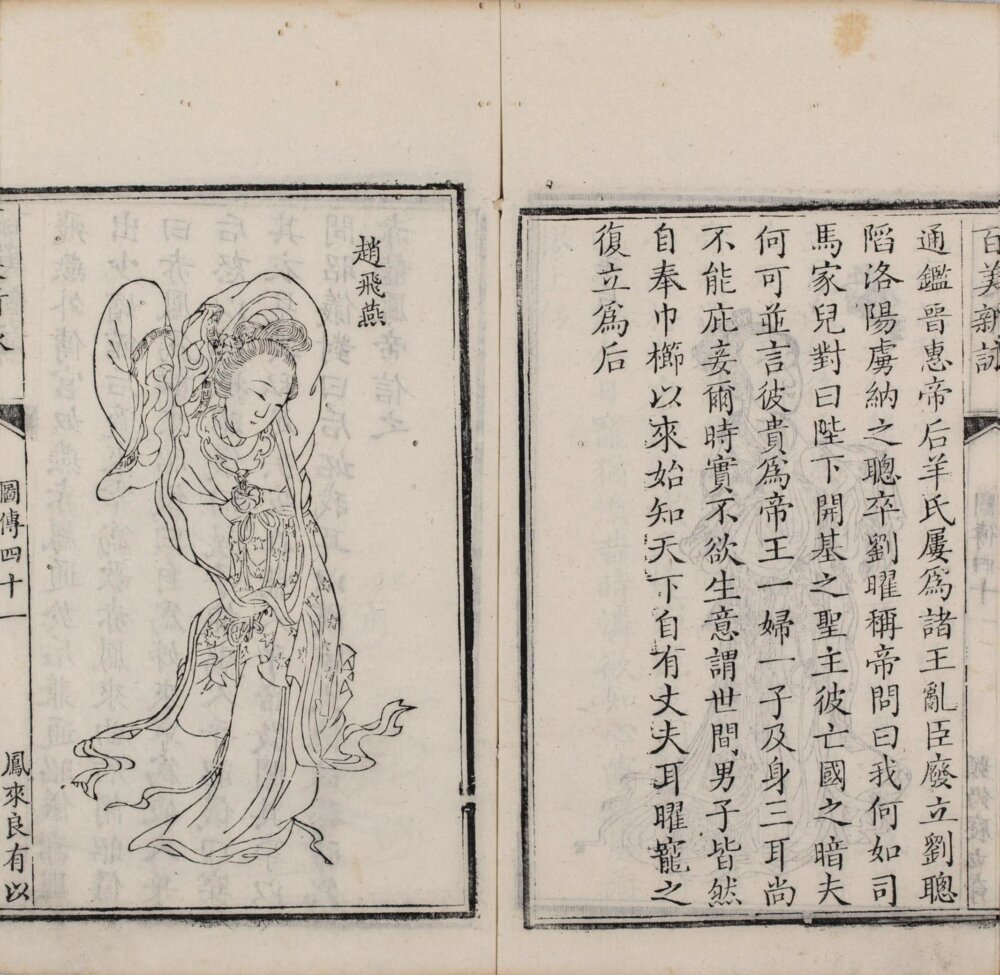 百美新詠
通鑑晉惠帝后羊氏屢爲諸王亂臣廢立劉聰
陷洛陽虜納之聰卒劉曜稱帝問曰我何如司
馬家兒對曰陛下開基之聖主彼亡國之暗夫
何可並言彼貴爲帝王一婦一子及身三耳尚
不能庇妾爾時實不欲生意謂世間男子皆然
自奉巾櫛以來始知天下自有丈夫耳曜寵之
復立爲后
趙飛燕
圖傳四十一
鳳來良有以